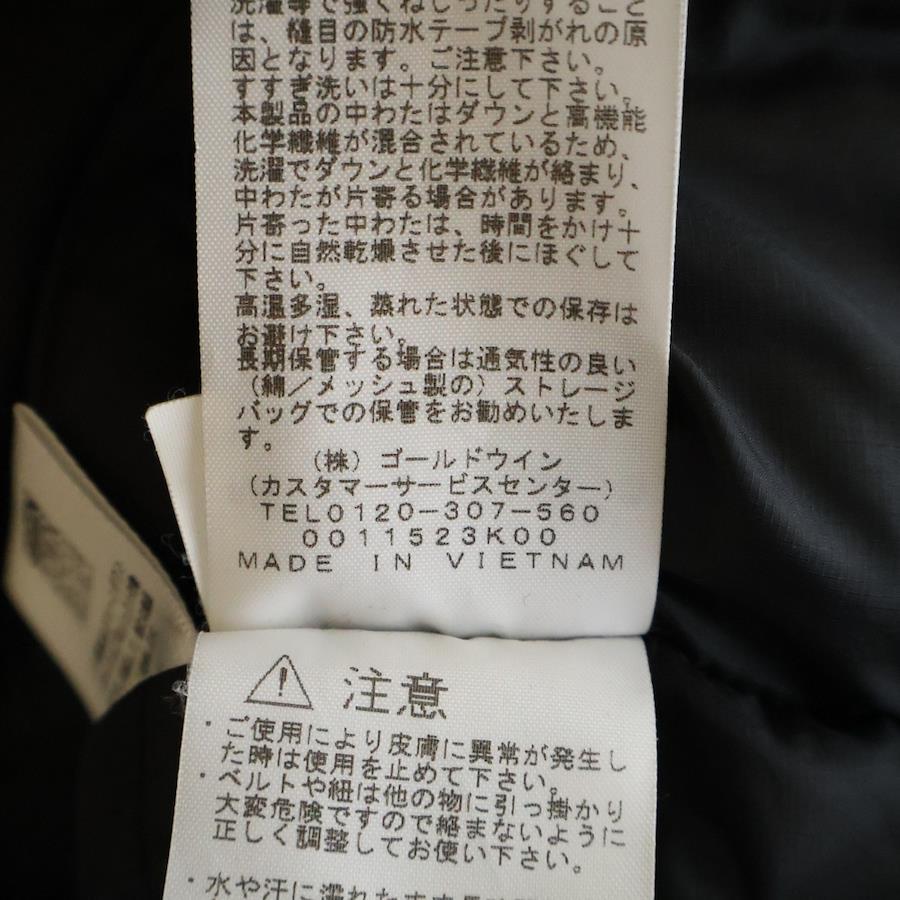 洗濯等で強くねじったりすること
は、縫目の防水テープ剥がれの原
因となります。ご注意下さい。
すすぎ洗いは十分にして下さい。
本製品の中わたはダウンと高機能
化学繊維が混合されているため、
洗濯でダウンと化学繊維が絡まり、
中わたが片寄る場合があります。
片寄った中わたは、時間をかけ十
分に自然乾燥させた後にほぐして
下さい。
高温多湿、蒸れた状態での保存は
お避け下さい。
長期保管する場合は通気性の良い
(綿／メッシュ製の) ストレージ
バッグでの保管をお勧めいたしま
す。
(株) ゴールドウイン
(カスタマーサービスセンター)
TEL0120-307-560
0011523K00
MADE IN VIETNAM
注意
・ご使用により皮膚に異常が発生し
た時は使用を止めて下さい。
・ベルトや紐は他の物に引っ掛かり
大変危険ですので絡まないように
正しく調整してお使い下さい。
・水や汗に濡れたまま